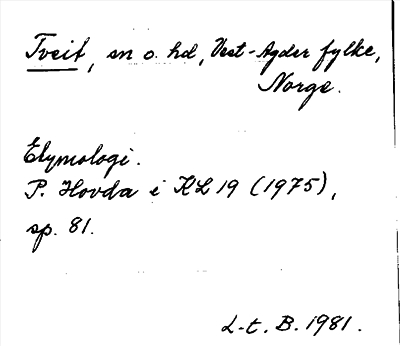 Tveit, sn o. hd, Vest-Agder fylke,
Norge.
Etymologi.
P. Hovda i KL 19 (1975),
sp. 81.
L-t. B. 1981.